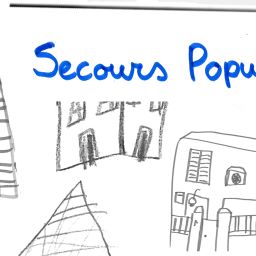 Secours Popu